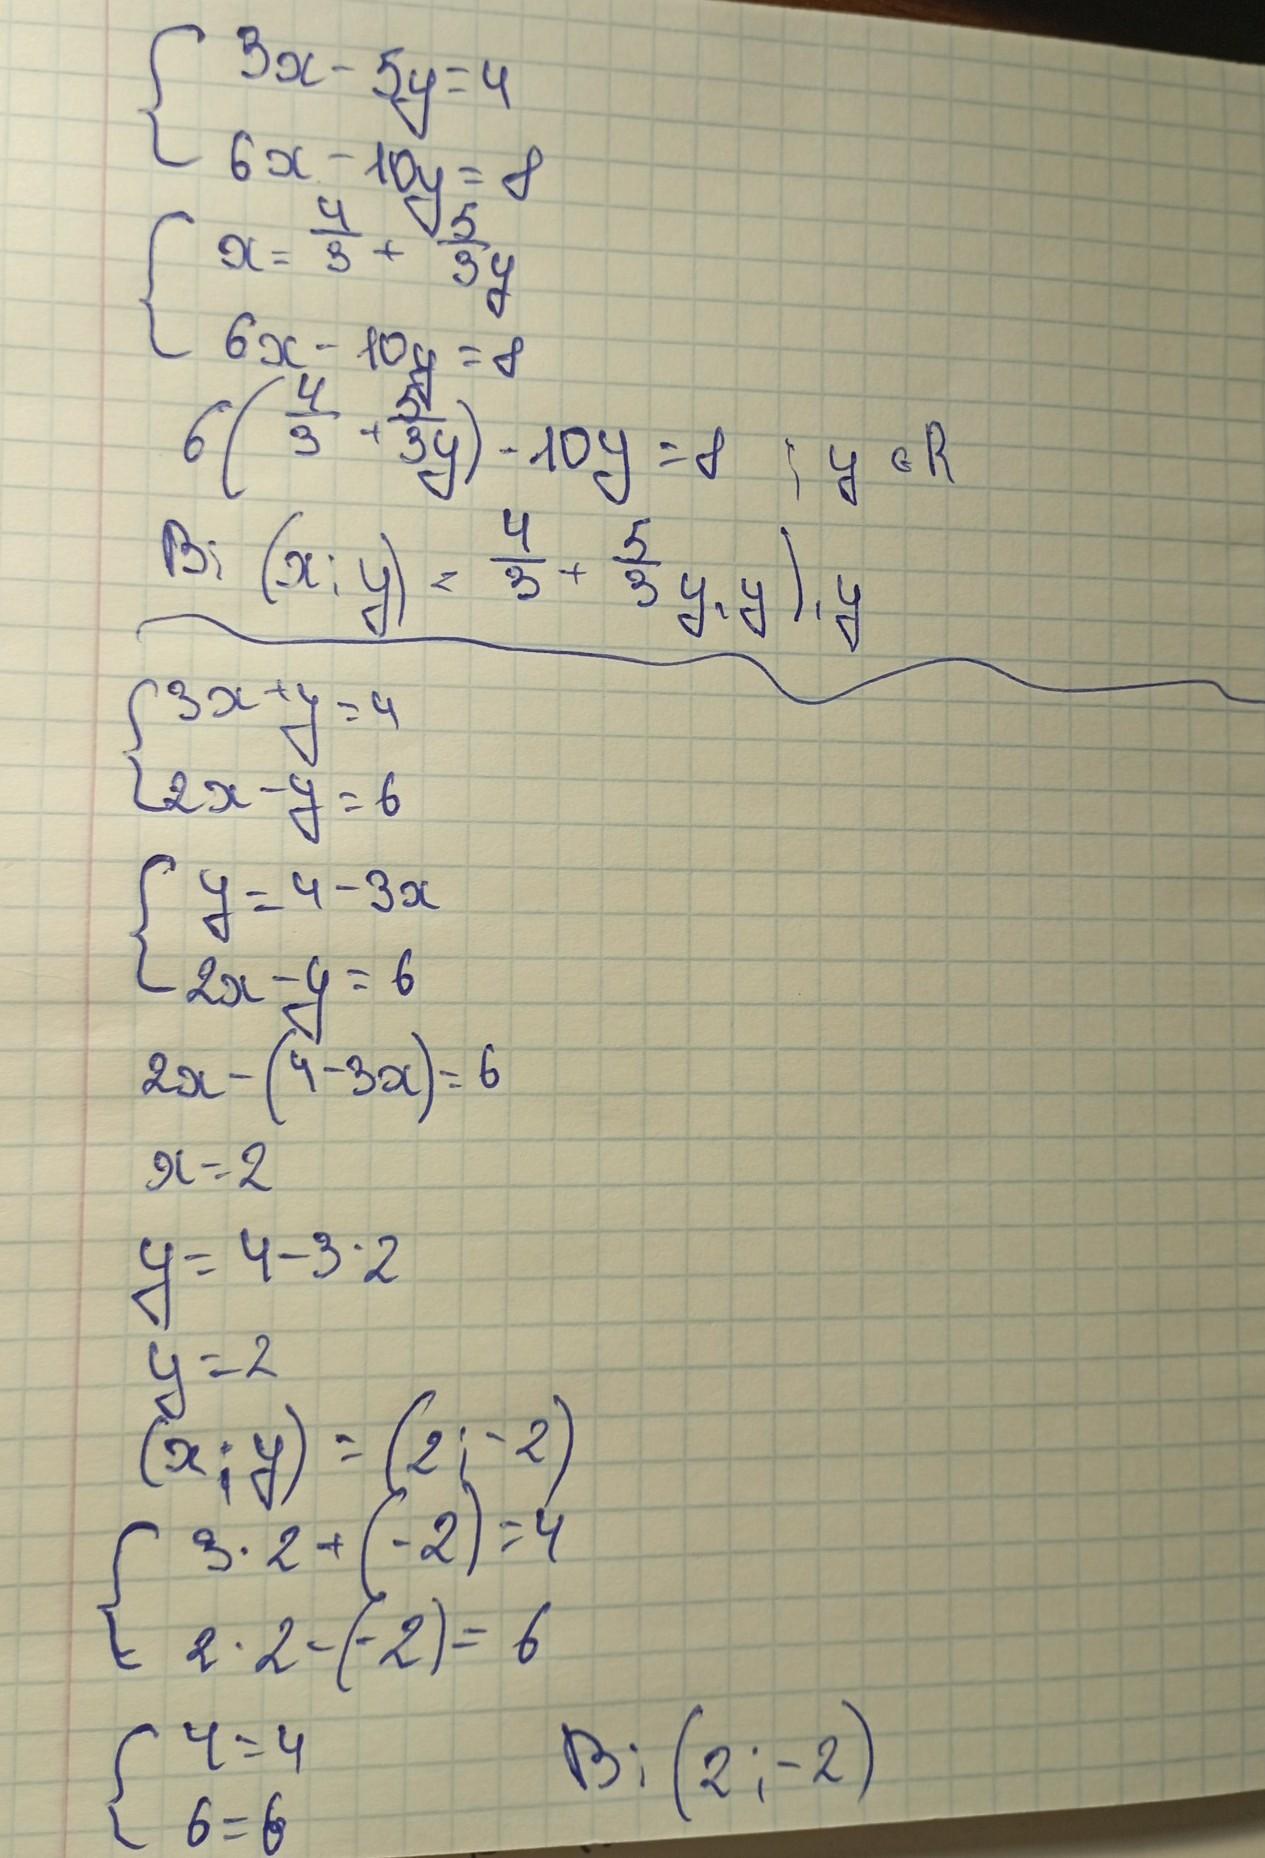 { 3x - 5y = 4
6x - 10y = 8
{ x = 4/3 + 5/3 y
6x - 10y = 8
6(4/3 + 5/3 y) - 10y = 8 ; y ∈ R
В: (x; y) = 4/3 + 5/3 y, y), y
{ 3x + y = 4
2x - y = 6
{ y = 4 - 3x
2x - y = 6
2x - (4 - 3x) = 6
x = 2
y = 4 - 3 · 2
y = -2
(x; y) = (2; -2)
{ 3 · 2 + (-2) = 4
2 · 2 - (-2) = 6
{ 4 = 4
6 = 6
В: (2; -2)